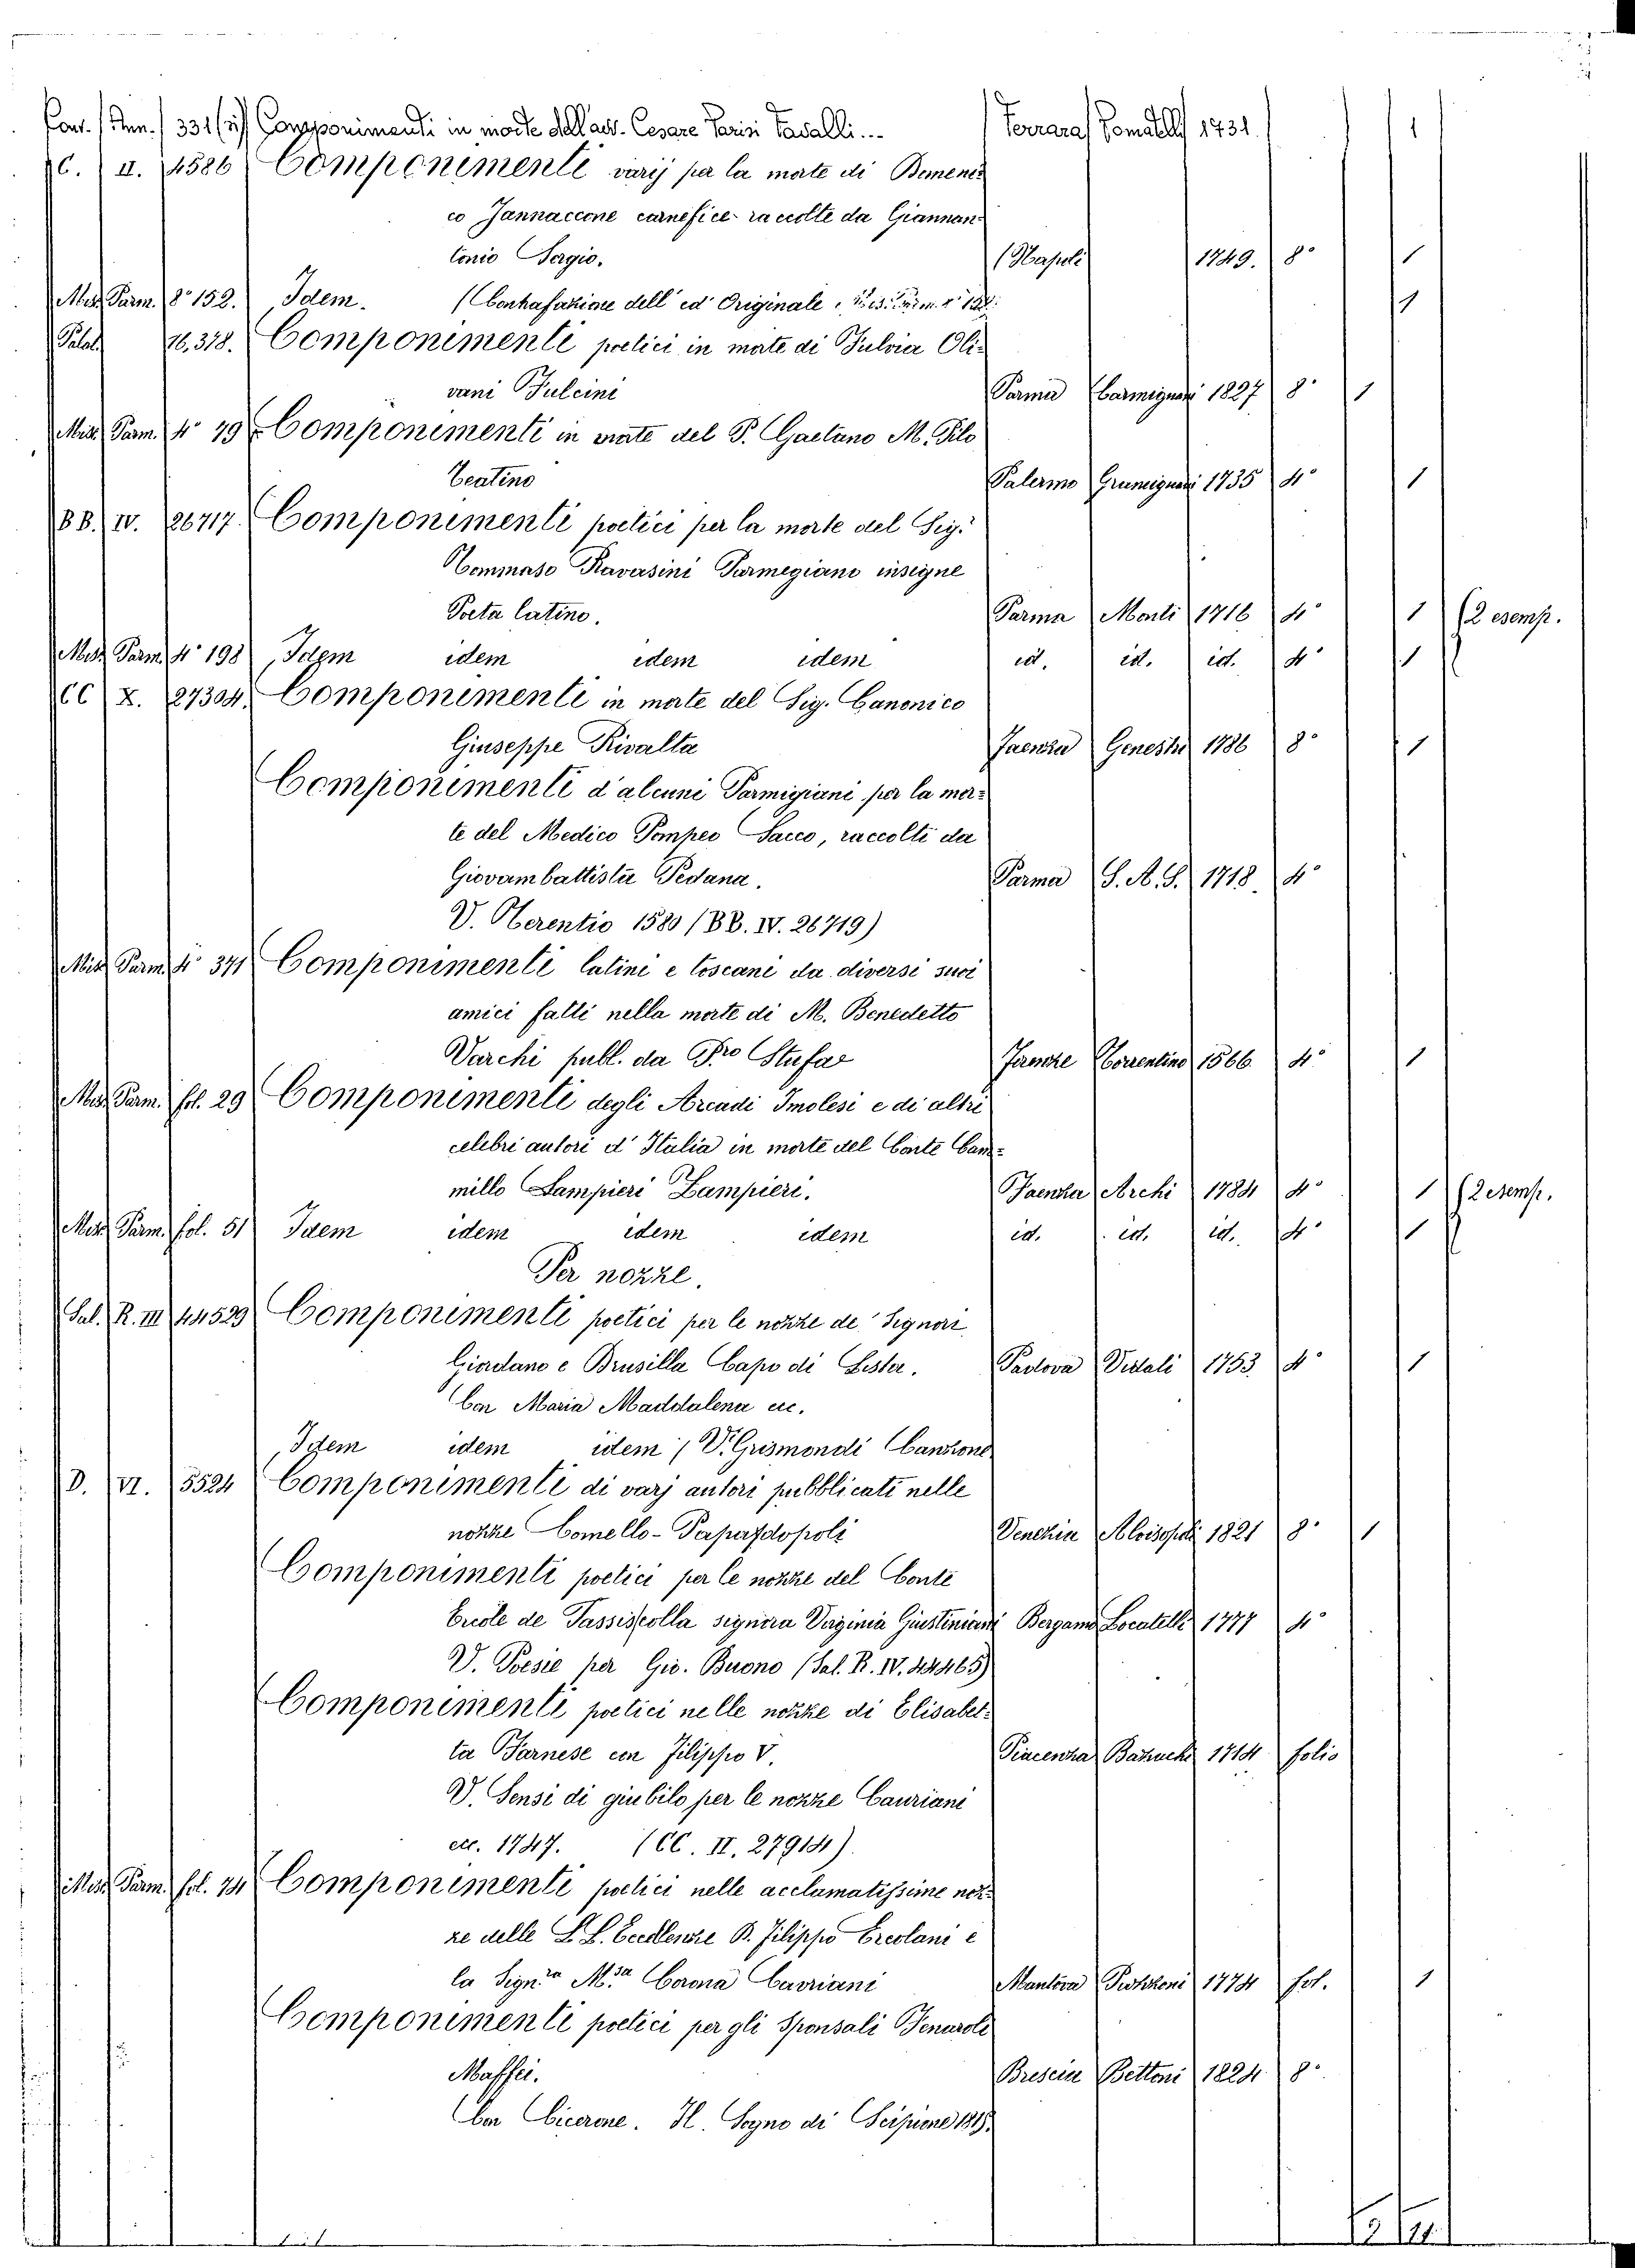 331 Componimenti in morte dell'avv. Cesare Parisi Cavalli... Ferrara Pomatelli 1731
C. II. 4586 Componimenti varij per la morte di Domeni-
co Jannaccone carnefice raccolte da Giannan-
tonio Sergio. (Napoli 1749. 8° 1
Misc. Parm. 8° 152. Idem. (Contrafazione dell' ed. Originale 1
Palat. 16,378. Componimenti poetici in morte di Fulvia Oli-
vani Fulcini Parma Carmignani 1827 8° 1
Misc. Parm. 4° 79 Componimenti in morte del P. Gaetano M. Filo
Teatino Palermo Gramignani 1735 4° 1
BB. IV. 26717. Componimenti poetici per la morte del Sig.r
Tommaso Ravasini Parmegiano insigne
Poeta latino. Parma Monti 1716 4° 1 (2 esemp.
Misc. Parm. 4° 198 Idem idem idem idem id. id. id. 4° 1
CC X. 27304. Componimenti in morte del Sig. Canonico
Giuseppe Rivalta Faenza Genestri 1786 8° 1
Componimenti d'alcuni Parmigiani per la mor-
te del Medico Pompeo Sacco, raccolti da
Giovambattista Pedana. Parma S. A. S. 1718. 4°
V. Terentio 1580 (BB. IV. 26719)
Misc. Parm. 4° 371 Componimenti latini e toscani da diversi suoi
amici fatti nella morte di M. Benedetto
Varchi publ. da Pro Stufa Firenze Torrentino 1566. 4° 1
Misc. Parm. fol. 29 Componimenti degli Arcadi Imolesi e di altri
celebri autori d'Italia in morte del Conte Cam-
millo Lampieri Zampieri. Faenza Archi 1784 4° 1 (2 esemp.
Misc. Parm. fol. 51 Idem idem idem idem id. id. id. 4° 1
Per nozze.
Sal. R. III 44529 Componimenti poetici per le nozze de' Signori
Giordano e Brusilla Capo di Lista. Padova Vidali 1753. 4° 1
Con Maria Maddalena ec.
Idem idem idem (V. Grismondi Canzone
D. VI. 5524 Componimenti di varj autori pubblicati nelle
nozze Comello-Papafdopoli Venezia Alvisopoli 1821 8° 1
Componimenti poetici per le nozze del Conte
Ercole de Tassis colla signora Virginia Giustiniani Bergamo Locatelli 1777 4°
V. Poesie per Gio. Buono (Sal. R. IV. 44465)
Componimenti poetici nelle nozze di Elisabet-
ta Farnese con Filippo V. Piacenza Bazachi 1714 folio
V. Sensi di giubilo per le nozze Cauriani
ecc. 1747. (CC. II. 27914).
Misc. Parm. fol. 74 Componimenti poetici nelle acclamatissime noz-
ze delle LL. Eccellenze D. Filippo Ercolani e
la Sign.ra M.sa Corona Cavriani Mantova Pazzoni 1774 fol. 1
Componimenti poetici per gli Sponsali Fenaroli
Maffei. Brescia Bettoni 1824 8°
Con Cicerone. Il Sogno di Scipione 1819.